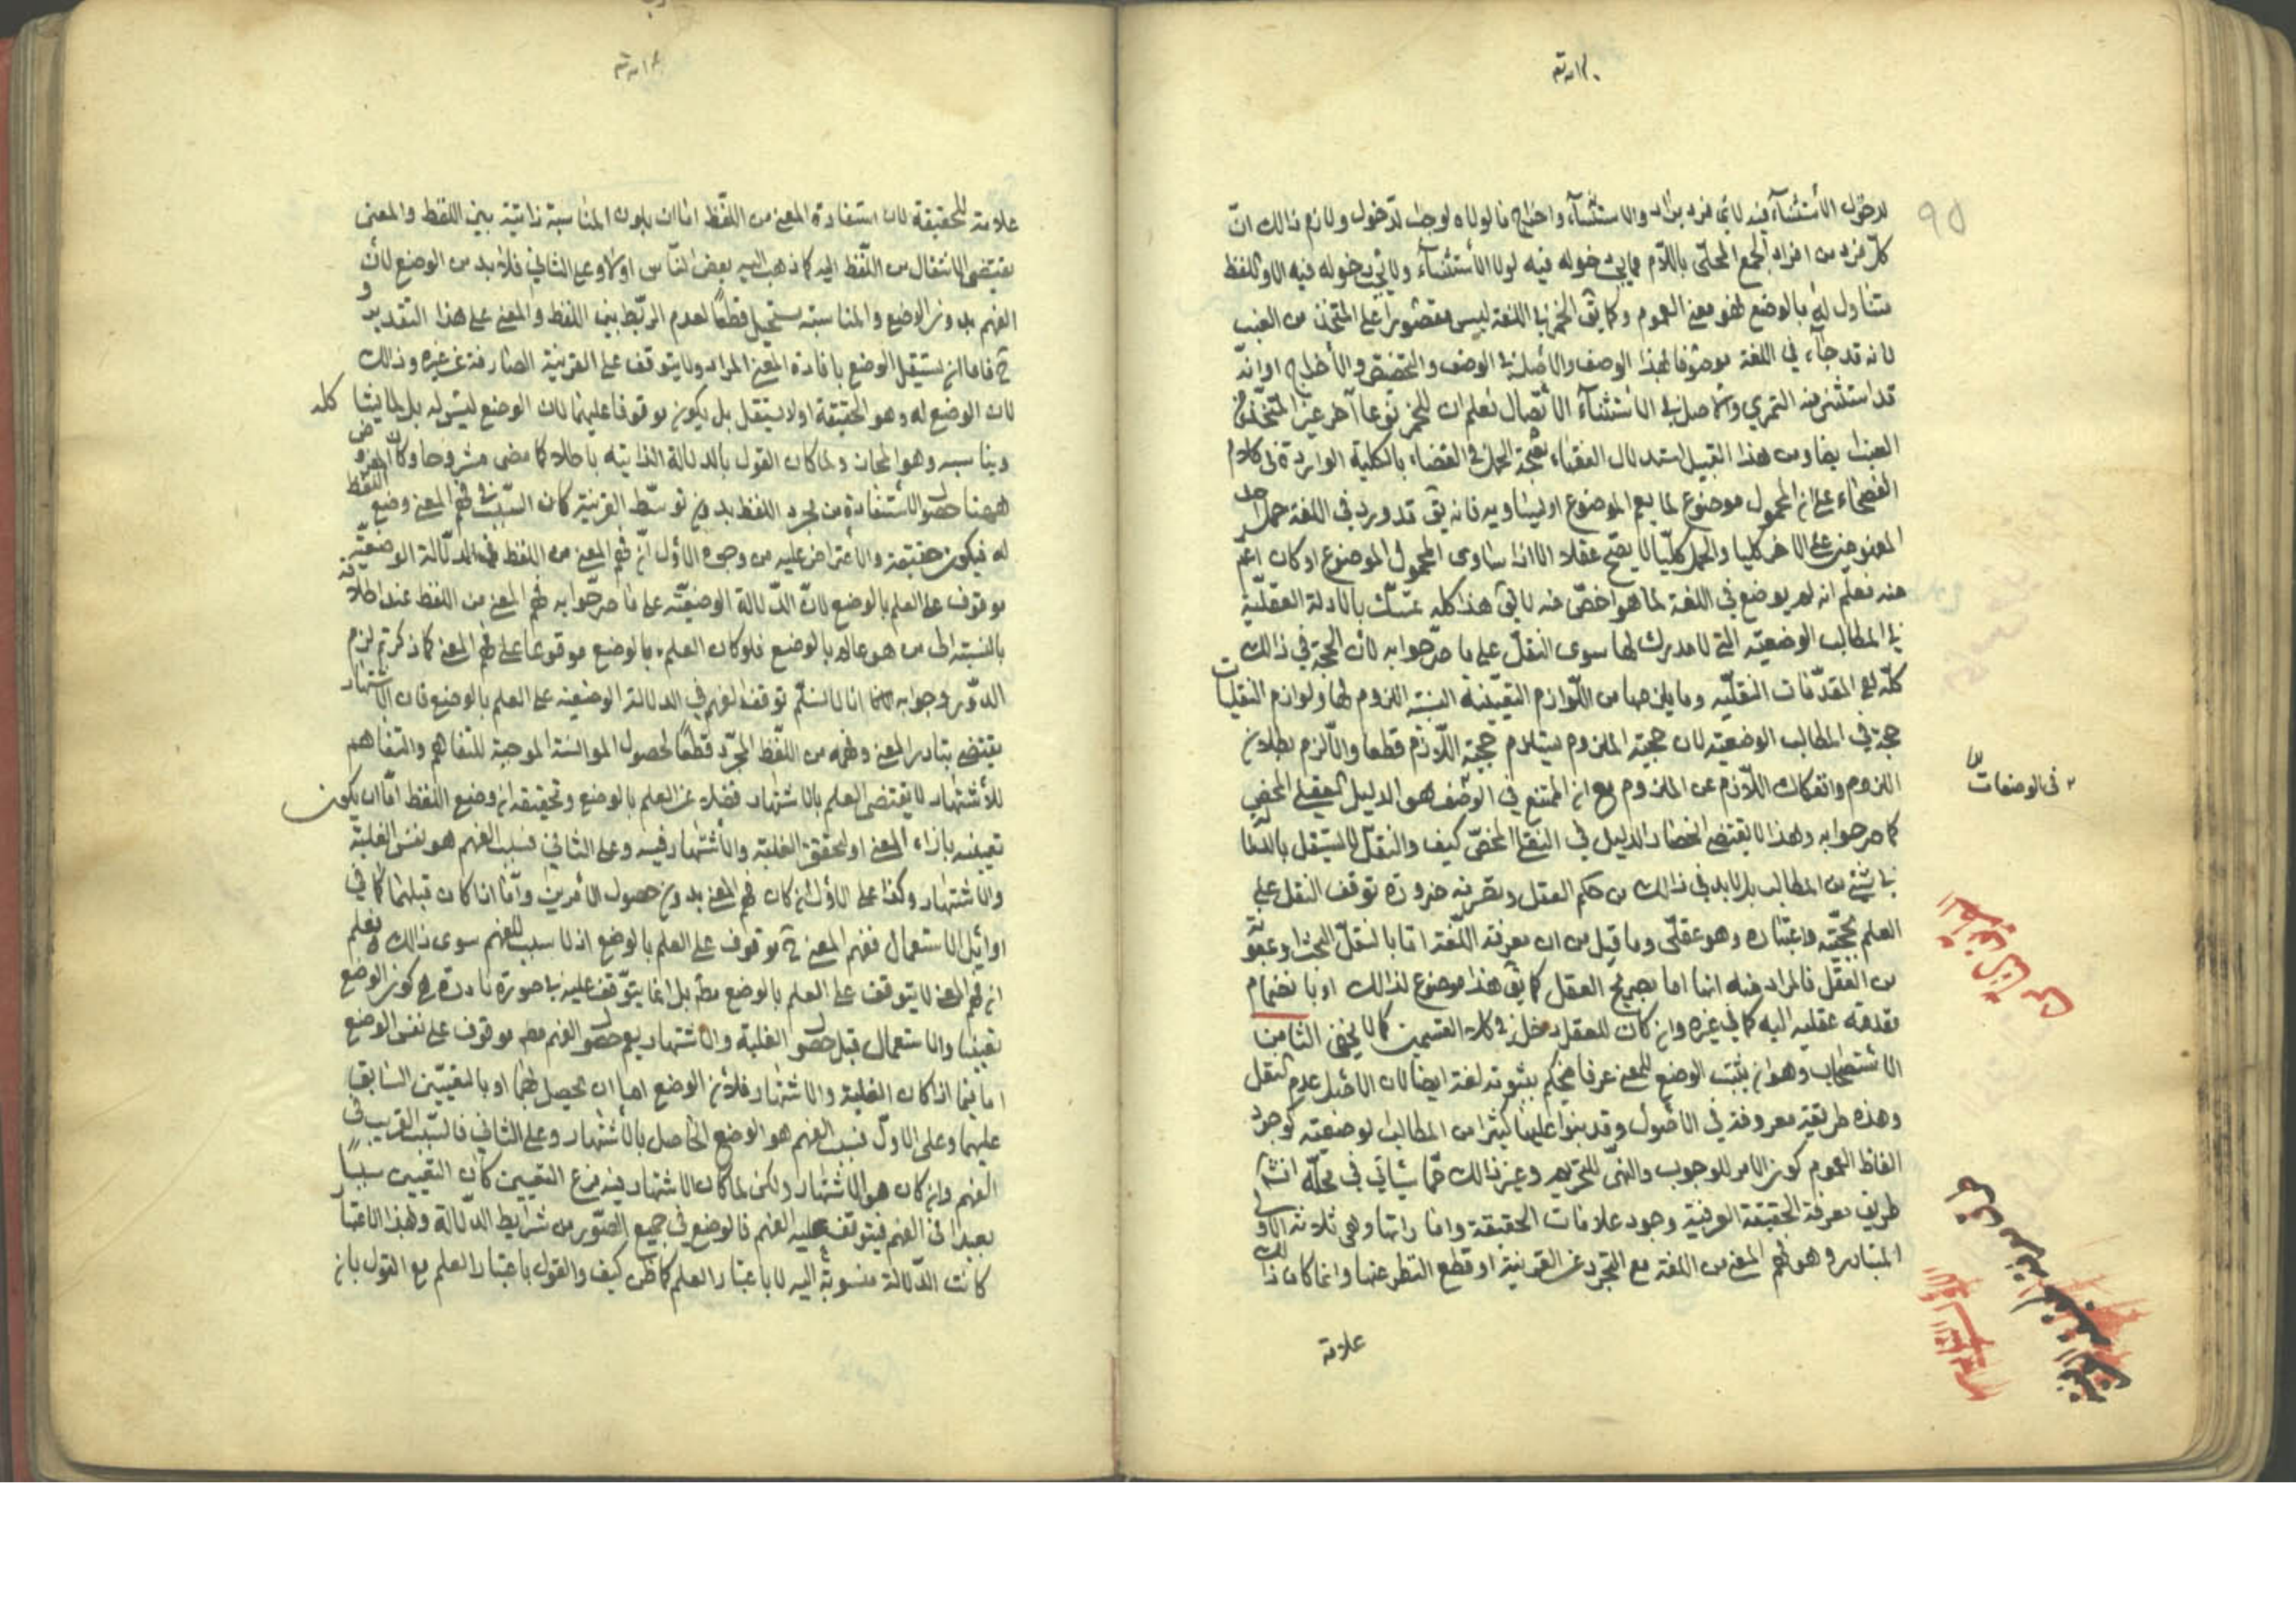 ٩٥
لدخول الأستثناء فيه لاى فرد يراد والاستثناء واخراج مالولاه لوجب الدخول ولازم ذالك انّ
كلّ فرد من افراد الجمع المحلّى باللّام مما يجب دخوله فيه لولا الأستثناء ولا يجب دخوله فيه الاواللفظ
متناول له بالوضع فهو معنى العموم وكما يق الخمر فى اللغة ليس مقصورا على المتخذ من العنب
لانه قد جاء فى اللغة موصوفا بهذا الوصف والأصل فى الوصف والتخصيص والأخراج اوانّه
قد استثنى منه التمرى والاصل فى الاستثناء الأتّصال فعلم ان للخمر نوعا آخر غير المتخذ من
العنب ايضا ومن هذا القبيل استدلال الفقهاء بصحة الحمل فى القضاء بالكلية الواردة فى كلام
الفصحاء على ان المحمول موضوع لما يعم الموضوع اويساويه فانه يق قد ورد فى اللغة حمل احد
المفهومين على الاخر كليا والحمل كلّيا لا يصح عقلا الا اذا ساوى المحمول الموضوع اوكان اعمّ
منه فعلم انه لم يوضع فى اللغة لما هو اخصّ منه لا يق هذا كله تمسّك بالادلة العقليّة
فى المطالب الوضعيّه التى لا مدرك لها سوى النقل على ما صرّحوا به لأن الحجة فى ذالك
كلّه هى المقدّمات النقليّه وما يلزمها من اللّوازم التعيّنية البيّنة اللزوم لها ولوازم النقليات
حجة فى المطالب الوضعيّه لان حجية الملزوم يستلزم حجية اللّازم قطعا والّا لزم بطلان
اللزوم وانفكاك اللّازم عن الملزوم مع ان الممتنع فى الوضع هو الدليل العقلى المحض
فى الوضعيات
كما صرحوا به وهذا لا يقتضى انحصار الدليل فى النقلى المحض كيف والنقل لا يستقل بالدلالة
فى شئ من المطالب بل لابد فى ذالك من حكم العقل وتصرفه ضرورة توقف النقل على
العلم بحجيّته واعتباره وهو عقلّى وما قيل من ان معرفة اللّغة اما بالنقل البحت او بمعونة
من العقل فالمراد منه انها اما بصريح النقل كما يق هذا موضوع لذالك او بانضمام
مقدمة عقليه اليه كما فى غيره وان كان للعقل مدخل فى كلا القسمين كما لا يخفى الثامن
الاستصحاب وهو ان يثبت الوضع للمعنى عرفا فيحكم بثبوته لغة ايضا لان الأصل عدم النقل
وهذه طريقة معروفة فى الاصول وقد بنوا عليها كثيرا من المطالب الوضعيّه كوجود
الفاظ العموم كون الامر للوجوب والنهى للتحريم وغير ذالك ممّا سيأتى فى محلّه انشا
طريق معرفة الحقيقة العرفية وجود علامات الحقيقة واماراتها وهى ثلاثة الاولى
التبادر وهو فهم المعنى من اللفظ مع التجرد عن القرينة او قطع النظر عنها وانما كان ذالك
علامة
علامة للحقيقة لان استفادة المعنى من اللّفظ اما ان يكون المناسبة ذاتيّة بين اللفظ والمعنى
يقتضى الانتقال من اللّفظ اليه كما ذهب اليه بعض النّاس اولا وعلى الثانى فلا بد من الوضع لأن
الفهم بدون الوضع والمناسبة يستحيل قطعا لعدم الرّبط بين اللفظ والمعنى على هذا التقدير و
ح فاما ان يستقل الوضع بافادة المعنى المراد ولا يتوقف على القرينة الصارفة عن غيره وذالك
لان الوضع له وهو الحقيقة اولا يستقل بل يكون موقوفا عليهما لان الوضع ليس له بل لما يشاكله
ويناسبه وهو المجاز ولما كان القول بالدلالة الذاتيّه باطلا كما مضى مشروحا وكان المفروض
ههنا حصول الأستفادة من مجرد اللفظ بدون توسّط القرينة كان السّبب فى فهم المعنى وضع اللفظ
له فيكون حقيقة والأعتراض عليه من وجوه الأول انّ فهم المعنى من اللفظ فى الدّلالة الوضعيّة
موقوف على العلم بالوضع لانّ الدّلالة الوضعيّه على ما صرّحوا به فهم المعنى من اللفظ عند اطلاقه
بالنسبة الى من هو عالم بالوضع فلو كان العلم بالوضع موقوفا على فهم المعنى كما ذكرتم لزم
الدّور وجوابه انا لا نسلّم توقف الفهم فى الدلالة الوضعيّه على العلم بالوضع فان الاشتهار
يقتضى تبادر المعنى وفهمه من اللّفظ المجرّد قطعا لحصول الموانسة الموجبة للتفاهم والتفاهم
للأشتهار لا يقتضى العلم بالاشتهار فضلا عن العلم بالوضع وتحقيقه ان وضع اللفظ امّا ان يكون
تعيينه بازاء المعنى او لتحقق الغلبة والأشتهار فيه وعلى الثانى فسبب الفهم هو نفس الغلبة
والاشتهار وكذا على الاوّل ان كان فهم المعنى بدون حصول الأمرين وأمّا اذا كان قبلهما كما فى
اوائل الاستعمال ففهم المعنى ح موقوف على العلم بالوضع اذ لا سبب للفهم سوى ذالك فعلم
ان فهم المعنى لا يتوقف على العلم بالوضع مط بل انما يتوقف عليه فى صورة نادرة هى كون الوضع
تعيينيا والاستعمال قبل حصول الغلبة والاشتهار نعم حصول الفهم مط موقوف على نفس الوضع
اما فيما اذا كان الغلبة والاشتهار فلأن الوضع اما ان يحصل بهما او بالتعيين السّابق
عليهما وعلى الاوّل فسبب الفهم هو الوضع الحاصل بالأشتهار وعلى الثانى فالسّبب القريب فى
الفهم وان كان هو الاشتهار ولكن لما كان الاشتهار فيه فرع التعيين كان التعيين سببا
بعيدا فى الفهم فيتوقف عليه الفهم فالوضع فى جميع الصّور من شرايط الدّلالة وبهذا الاعتبار
كانت الدّلالة منسوبة اليه لا باعتبار العلم كما ظن كيف والقول باعتبار العلم مع القول بان